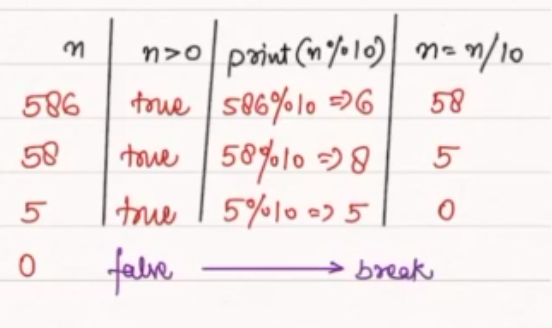 n n>0 print(n%10) n=n/10
586 true 586%10 => 6 58
58 true 58%10 => 8 5
5 true 5%10 => 5 0
0 false → break